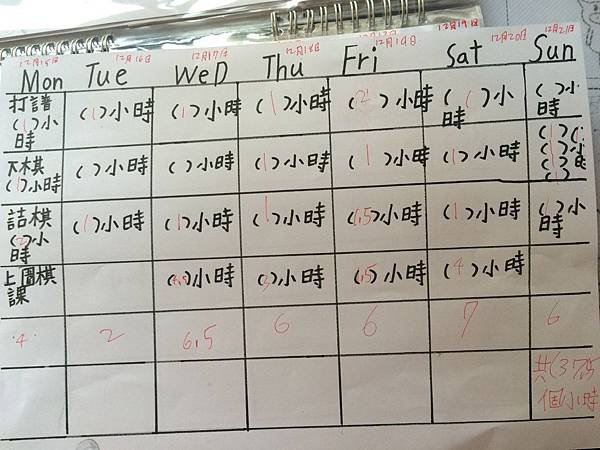 12月15日 12月16日 12月17日 12月18日 12月19日 12月20日 12月21日
Mon Tue WeD Thu Fri Sat Sun
打譜 (1)小時 (1)小時 (1)小時 (1)小時 (2)小時 (1)小時 ( )小時
下棋 (1)小時 ( )小時 ( )小時 (1)小時 (1)小時 (1)小時
詰棋 (2)小時 (1)小時 (1)小時 (1)小時 (1.5)小時 (1)小時 (1)小時
上圍棋課 小時 (3)小時 (1.5)小時 (4)小時
4 2 6.5 6 6 7 6
個小時